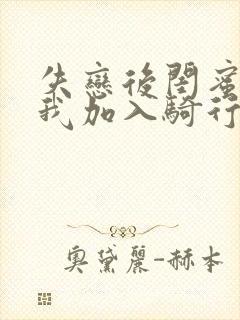 失戀後閨蜜
我加入騎行
奧黛麗-赫本